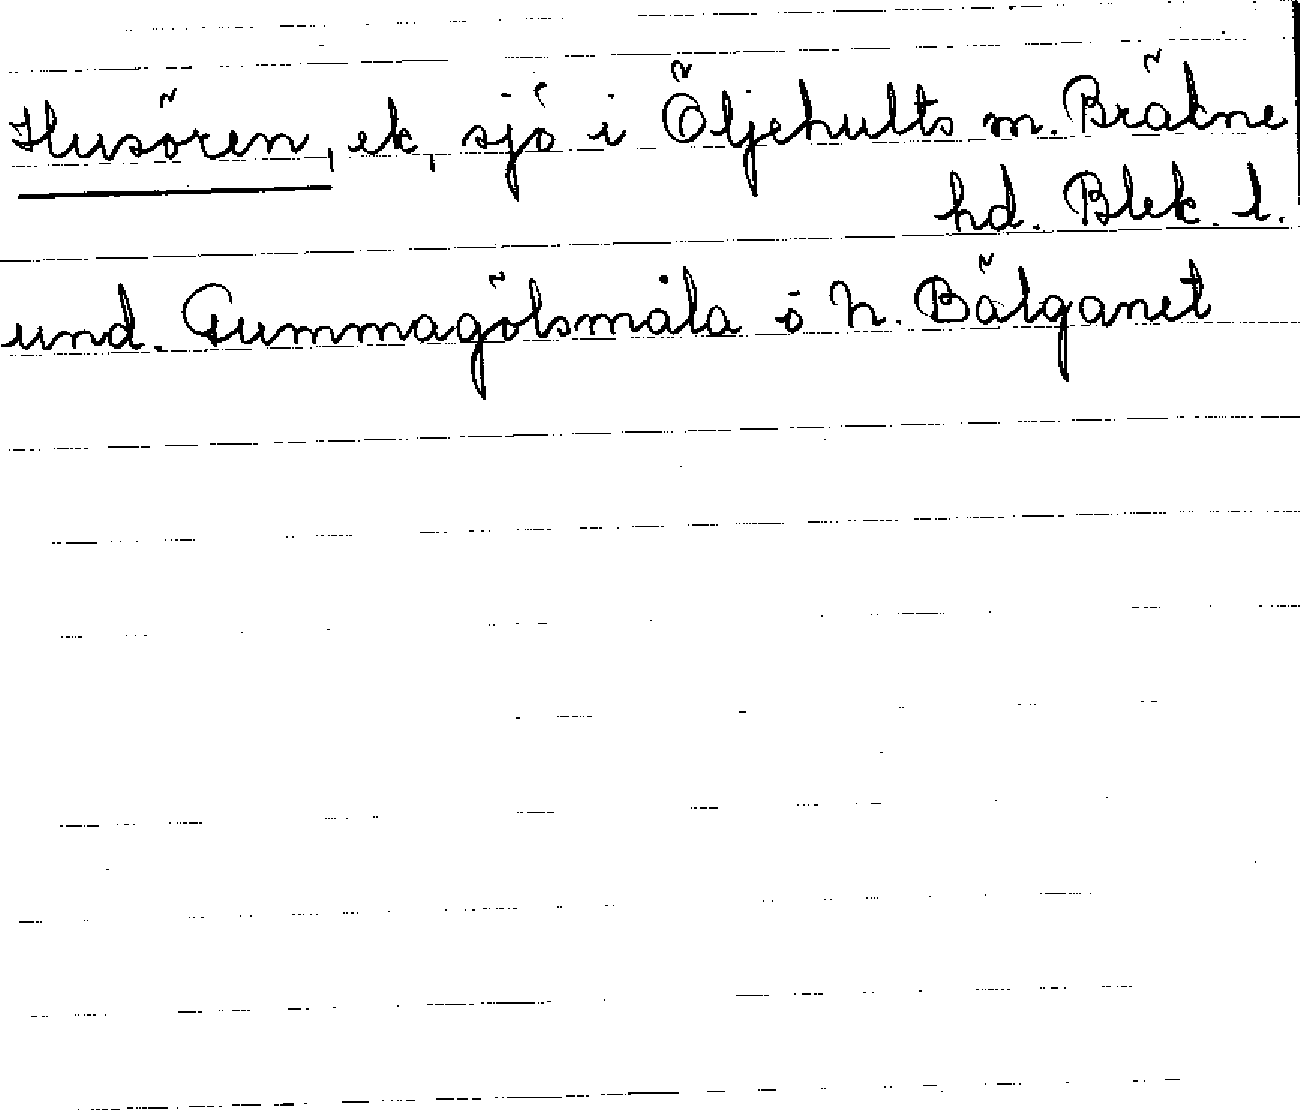 Husören, ek, sjö i Öljehults m. Bräkne
hd. Blek. l.
und. Gummagölsmåla ö N. Bälganet